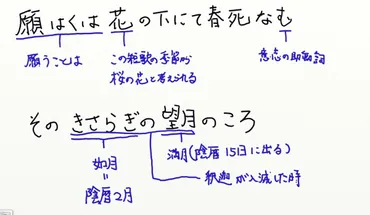 願はくは花の下にて春死なむ
願うことは
この短歌の季節から
桜の花と考えられる
意志の助動詞
そのきさらぎの望月のころ
如月
=
陰暦2月
満月(陰暦15日に出る)
釈迦が入滅した時